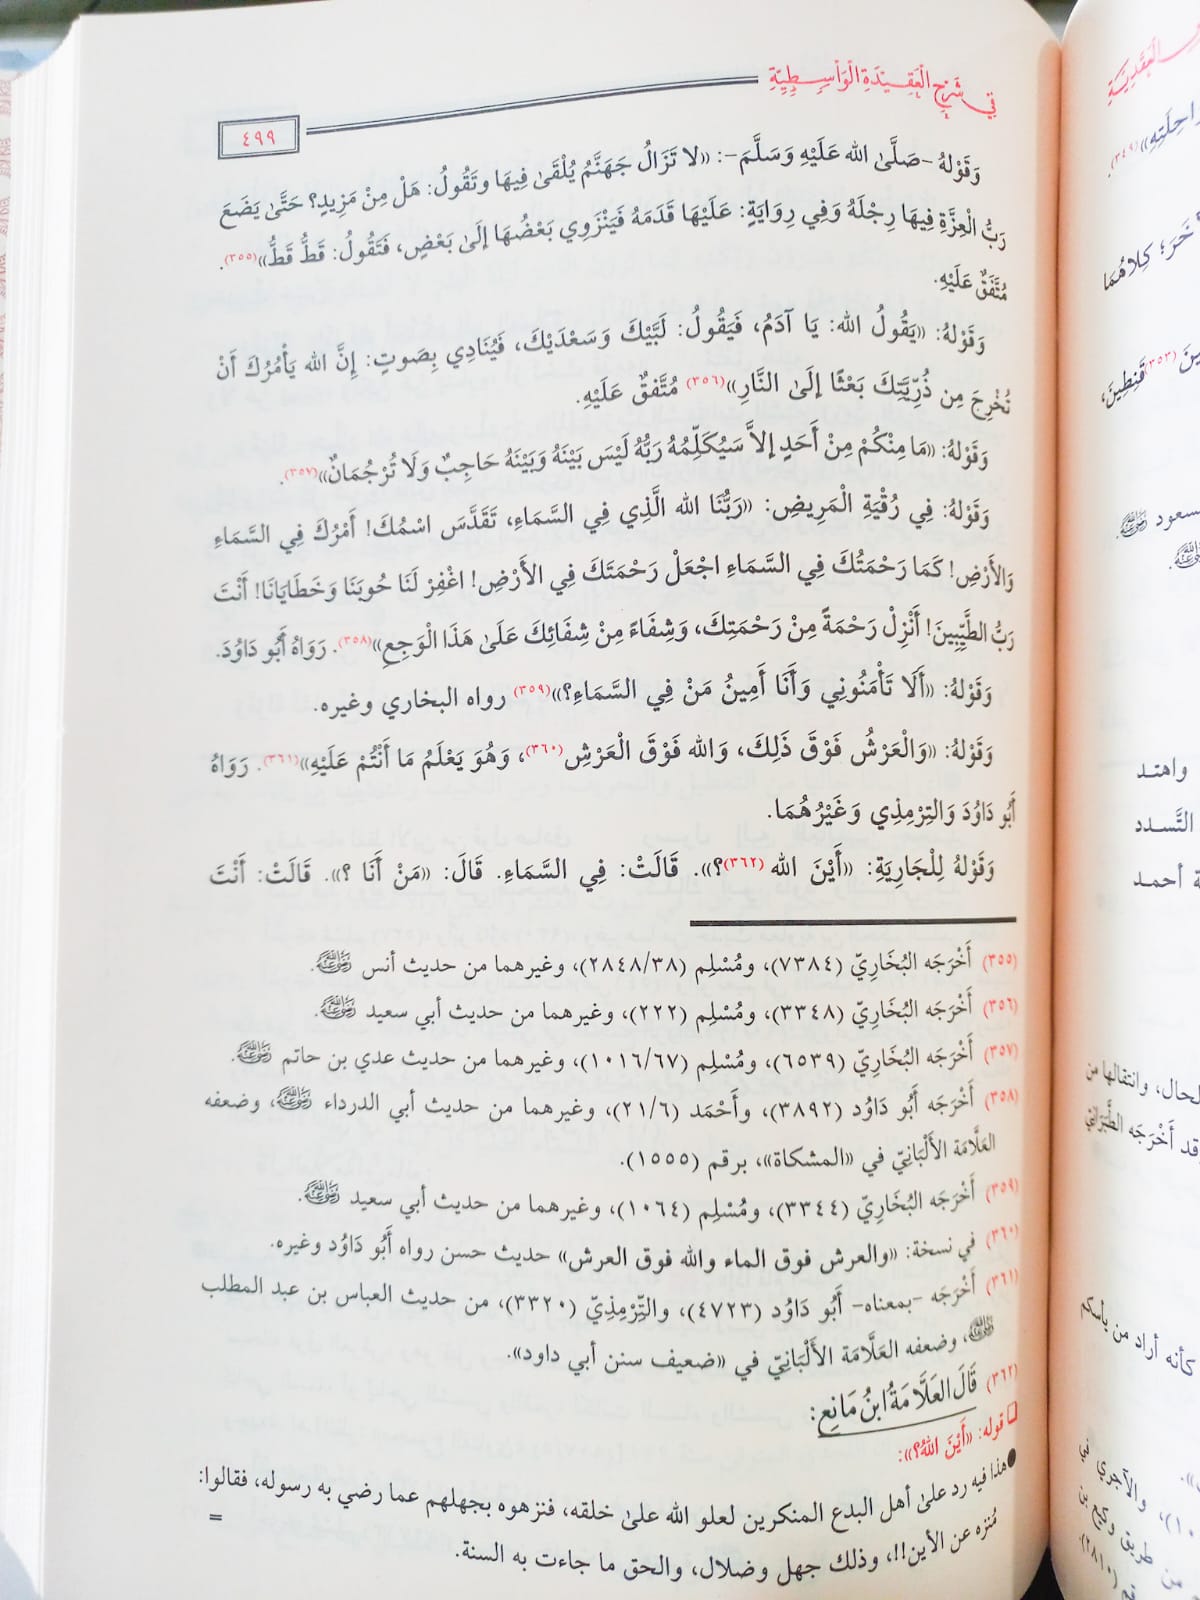 في شَرْحِ الْعَقِيْدَةِ الْوَاسِطِيَّةِ
٤٩٩
وَقَوْلهُ -صَلَّىٰ الله عَلَيْهِ وَسَلَّمَ-: «لا تَزَالُ جَهَنَّمُ يُلْقَىٰ فِيهَا وتَقُولُ: هَلْ مِنْ مَزِيدٍ؟ حَتَّىٰ يَضَعَ
رَبُّ الْعِزَّةِ فِيهَا رِجْلَهُ وَفِي رِوَايَةٍ: عَلَيْهَا قَدَمَهُ فَيَنْزَوِي بَعْضُهَا إلَىٰ بَعْضٍ، فَتَقُولُ: قَطُّ قَطُّ»(٣٥٥).
مُتَّفَقٌ عَلَيْهِ.
وَقَوْلهُ: «يَقُولُ الله: يَا آدَمُ، فَيَقُولُ: لَبَّيْكَ وَسَعْدَيْكَ، فَيُنَادِي بِصَوتٍ: إِنَّ الله يَأْمُرُكَ أَنْ
تُخْرِجَ مِن ذُرِّيَّتِكَ بَعْثًا إلَىٰ النَّارِ»(٣٥٦) مُتَّفقٌ عَلَيْهِ.
وَقَوْلهُ: «مَا مِنْكُمْ مِنْ أَحَدٍ إلاَّ سَيُكَلِّمُهُ رَبُّهُ لَيْسَ بَيْنَهُ وَبَيْنَهُ حَاجِبٌ وَلَا تُرْجُمَانٌ»(٣٥٧).
وَقَوْلهُ: فِي رُقْيَةِ الْمَرِيضِ: «رَبُّنَا الله الَّذِي فِي السَّمَاءِ، تَقَدَّسَ اسْمُكَ! أَمْرُكَ فِي السَّمَاءِ
وَالأَرْضِ! كَمَا رَحْمَتُكَ فِي السَّمَاءِ اجْعَلْ رَحْمَتَكَ فِي الأَرْضِ! اغْفِرْ لَنَا حُوبَنَا وَخَطَايَانَا! أَنْتَ
رَبُّ الطَّيِّبِينَ! أَنْزِلْ رَحْمَةً مِنْ رَحْمَتِكَ، وَشِفَاءً مِنْ شِفَائِكَ عَلَىٰ هَذَا الْوَجِعِ»(٣٥٨). رَوَاهُ أَبُو دَاوُدَ.
وَقَوْلهُ: «أَلَا تَأْمَنُونِي وَأَنَا أَمِينُ مَنْ فِي السَّمَاءِ؟»(٣٥٩) رواه البخاري وغيره.
وَقَوْلهُ: «وَالْعَرْشُ فَوْقَ ذَلِكَ، وَالله فَوْقَ الْعَرْشِ(٣٦٠)، وَهُوَ يَعْلَمُ مَا أَنْتُمْ عَلَيْهِ»(٣٦١). رَوَاهُ
أَبُو دَاوُدَ وَالتِرْمِذِي وَغَيْرُهُمَا.
وَقَوْلهُ لِلْجَارِيَةِ: «أَيْنَ الله(٣٦٢)؟». قَالَتْ: فِي السَّمَاءِ. قَالَ: «مَنْ أَنَا ؟». قَالَتْ: أَنْتَ
(٣٥٥) أَخْرَجَه البُخَارِيّ (٧٣٨٤)، ومُسْلِم (٢٨٤٨/٣٨)، وغيرهما من حديث أنس رَضِيَ اللهُ عَنْهُ.
(٣٥٦) أَخْرَجَه البُخَارِيّ (٣٣٤٨)، ومُسْلِم (٢٢٢)، وغيرهما من حديث أبي سعيد رَضِيَ اللهُ عَنْهُ.
(٣٥٧) أَخْرَجَه البُخَارِيّ (٦٥٣٩)، ومُسْلِم (١٠١٦/٦٧)، وغيرهما من حديث عدي بن حاتم رَضِيَ اللهُ عَنْهُ.
(٣٥٨) أَخْرَجَه أَبُو دَاوُد (٣٨٩٢)، وأَحْمَد (٢١/٦)، وغيرهما من حديث أبي الدرداء رَضِيَ اللهُ عَنْهُ، وضعفه
العَلَّامَة الأَلْبَانِيّ في «المشكاة»، برقم (١٥٥٥).
(٣٥٩) أَخْرَجَه البُخَارِيّ (٣٣٤٤)، ومُسْلِم (١٠٦٤)، وغيرهما من حديث أبي سعيد رَضِيَ اللهُ عَنْهُ.
(٣٦٠) في نسخة: «والعرش فوق الماء والله فوق العرش» حديث حسن رواه أَبُو دَاوُد وغيره.
(٣٦١) أَخْرَجَه -بمعناه- أَبُو دَاوُد (٤٧٢٣)، والتِّرْمِذِيّ (٣٣٢٠)، من حديث العباس بن عبد المطلب
رَضِيَ اللهُ عَنْهُ، وضعفه العَلَّامَة الأَلْبَانِيّ في «ضعيف سنن أبي داود».
(٣٦٢) قَالَ العَلَّامَةُ ابْنُ مَانِعٍ:
قوله: «أَيْنَ اللهُ؟»:
● هذا فيه رد علىٰ أهل البدع المنكرين لعلو الله علىٰ خلقه، فنزهوه بجهلهم عما رضي به رسوله، فقالوا:
مُنزه عن الأين!!، وذلك جهل وضلال، والحق ما جاءت به السنة.
=
احِلَتِهِ»(٣٤٩).
أَخَرَ؛ كِلاهُمَا
(٣٥٣) قَنِطِينَ،
سعود رَضِيَ اللهُ عَنْهُ.
واهتد
التَّسدد
ة أحمد
لحال، وانتقالها من
قد أَخْرَجَه الطَّبَرَانِيّ
كأنه أراد من بأسكم
والآجري في
من طريق وكيع بن
(٢٨١٠)